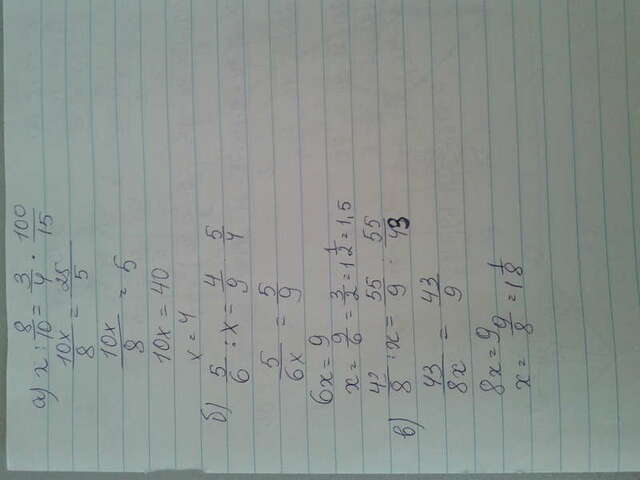 а) x : 8/10 = 3/4 · 100/15
10x/8 = 25/5
10x/8 = 5
10x = 40
x = 4
б) 5/6 : x = 4/9 · 5/4
5/6x = 5/9
6x = 9
x = 9/6 = 3/2 = 1 1/2 = 1,5
в) 43/8 : x = 55/9 : 55/43
43/8x = 43/9
8x = 9
x = 9/8 = 1 1/8